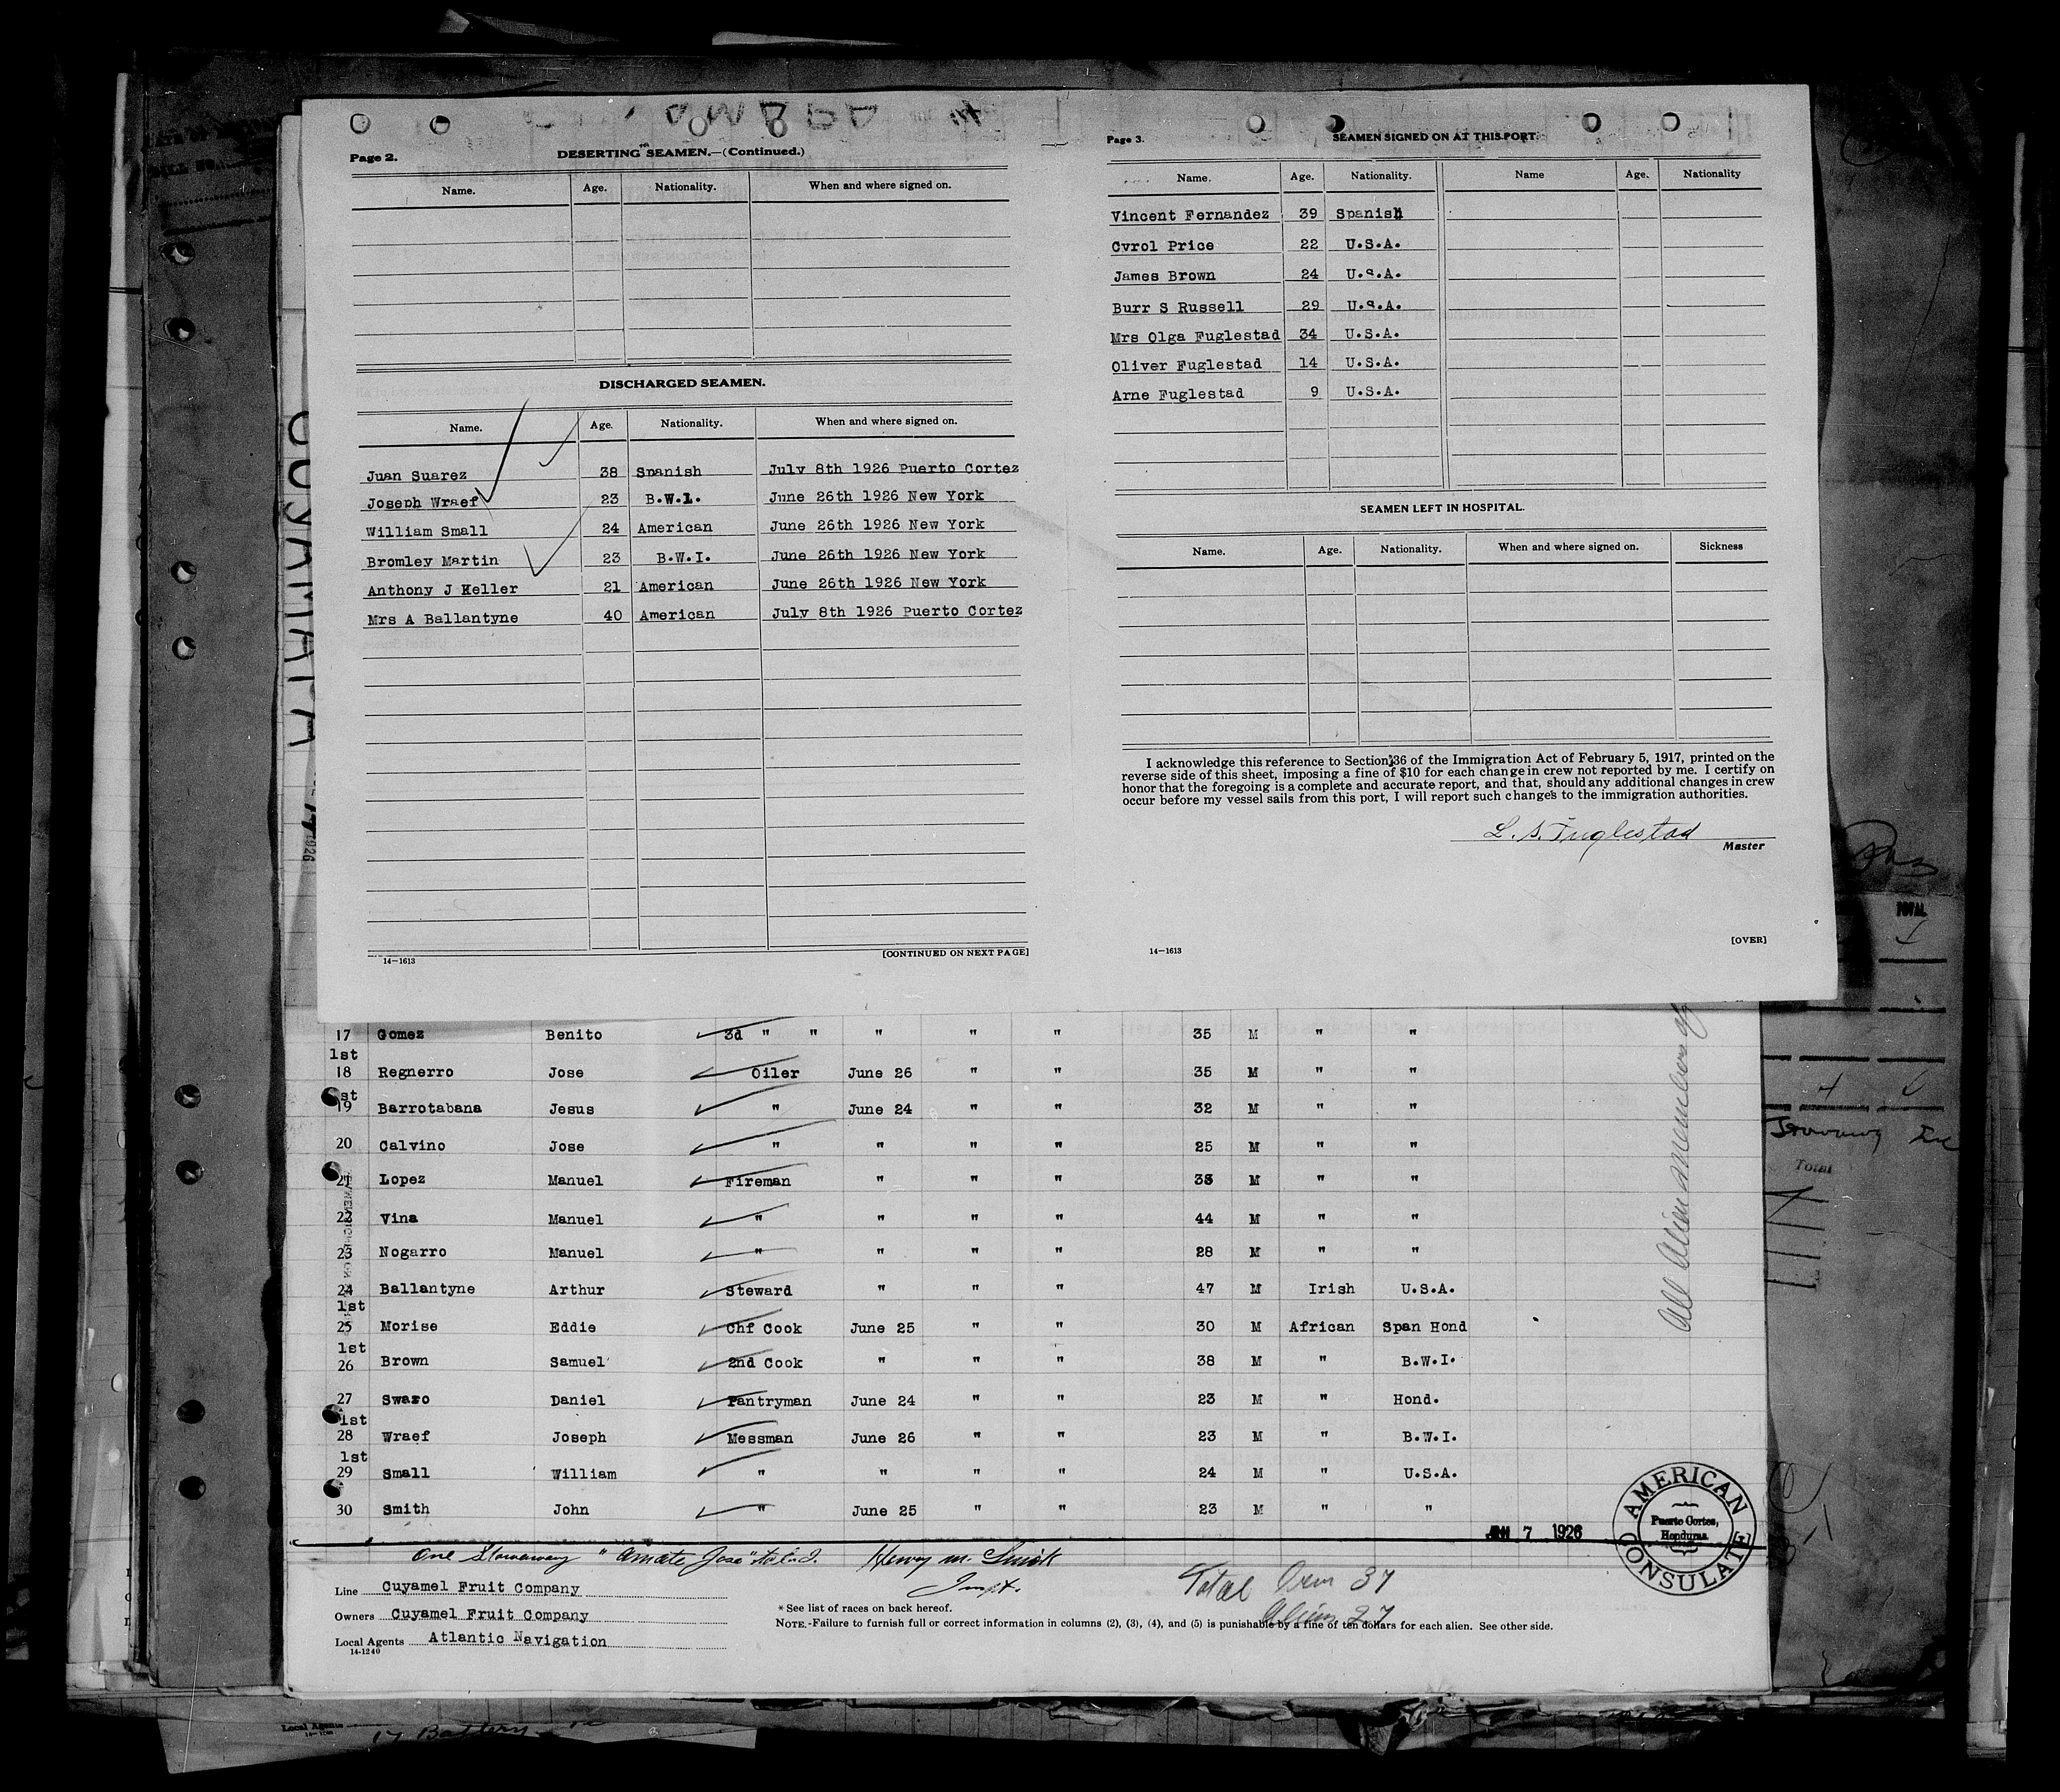 Page 2.
DESERTING SEAMEN.—(Continued.)
Name. Age. Nationality. When and where signed on.
DISCHARGED SEAMEN.
Name. Age. Nationality. When and where signed on.
Juan Suarez 38 Spanish July 8th 1926 Puerto Cortez
Joseph Wraef 23 B.W.I. June 26th 1926 New York
William Small 24 American June 26th 1926 New York
Bromley Martin 23 B.W.I. June 26th 1926 New York
Anthony J Keller 21 American June 26th 1926 New York
Mrs A Ballantyne 40 American July 8th 1926 Puerto Cortez
14—1613
[CONTINUED ON NEXT PAGE]
Page 3.
SEAMEN SIGNED ON AT THIS PORT.
Name. Age. Nationality. Name Age. Nationality
Vincent Fernandez 39 Spanish
Cvrol Price 22 U.S.A.
James Brown 24 U.S.A.
Burr S Russell 29 U.S.A.
Mrs Olga Fuglestad 34 U.S.A.
Oliver Fuglestad 14 U.S.A.
Arne Fuglestad 9 U.S.A.
SEAMEN LEFT IN HOSPITAL.
Name. Age. Nationality. When and where signed on. Sickness
I acknowledge this reference to Section 36 of the Immigration Act of February 5, 1917, printed on the
reverse side of this sheet, imposing a fine of $10 for each change in crew not reported by me. I certify on
honor that the foregoing is a complete and accurate report, and that, should any additional changes in crew
occur before my vessel sails from this port, I will report such changes to the immigration authorities.
L. S. Fuglestad
Master
14—1613
[OVER]
17 Gomez Benito 3d " " " " " 35 M " "
1st
18 Regnerro Jose Oiler June 26 " " 35 M " "
1st
19 Barrotabana Jesus " June 24 " " 32 M " "
20 Calvino Jose " " " " 25 M " "
21 Lopez Manuel Fireman " " " M " "
22 Vina Manuel " " " " 44 M " "
23 Nogarro Manuel " " " " 28 M " "
24 Ballantyne Arthur Steward " " " 47 M Irish U.S.A.
1st
25 Morise Eddie Chf Cook June 25 " " 30 M African Span Hond
1st
26 Brown Samuel 2nd Cook " " " 38 M " B.W.I.
27 Swazo Daniel Pantryman June 24 " " 23 M " Hond.
1st
28 Wraef Joseph Messman June 26 " " 23 M " B.W.I.
1st
29 Small William " " " " 24 M " U.S.A.
30 Smith John " June 25 " " 23 M " "
7 1926
AMERICAN CONSULATE
Puerto Cortes,
Honduras
One Stowaway "Amate Jose"
Henry M.
Total Crew 37
Alien 27
Line Cuyamel Fruit Company
Owners Cuyamel Fruit Company
Local Agents Atlantic Navigation
14-1240
* See list of races on back hereof.
NOTE.-Failure to furnish full or correct information in columns (2), (3), (4), and (5) is punishable by a fine of ten dollars for each alien. See other side.
All Alien members of
TOTAL
Total
Local Agents
17 Battery